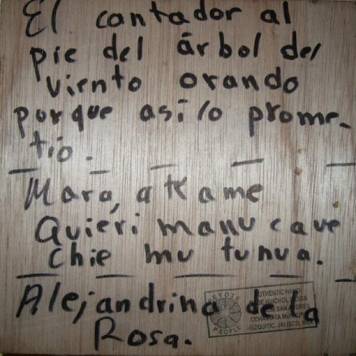 El cantador al
pie del árbol del
viento orando
porque así lo prome-
tió.
Mara, a te ame
Quieri manu cave
chie mu tunua.
Alejandrina de la
Rosa.